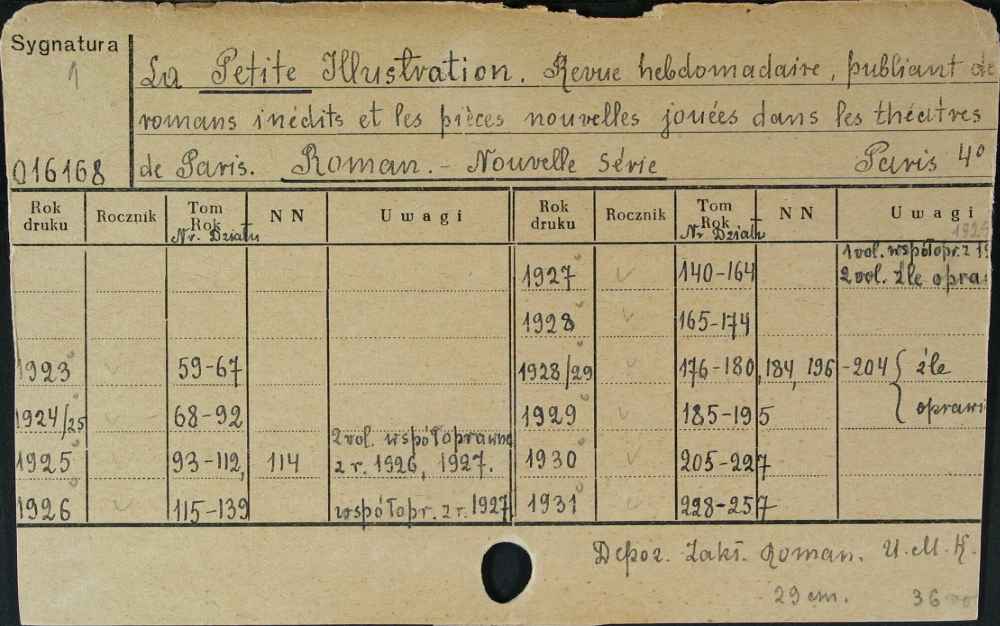 Sygnatura
1
La Petite Illustration. Revue hebdomadaire, publiant de
romans inédits et les pièces nouvelles jouées dans les théâtres
016168 de Paris. Roman. - Nouvelle Série Paris 4°
Rok druku Rocznik Tom Rok Nr. Działu NN Uwagi Rok druku Rocznik Tom Rok Nr. Działu NN Uwagi
1927 140-164 1 vol. współopr. z
2 vol. źle opra
1928 165-174
1923 59-67 1928/29 176-180, 184, 196-204 { źle
1924/25 68-92 1929 185-195 oprawi
1925 93-112, 114 2 vol. współoprawne z r. 1926, 1927. 1930 205-227
1926 115-139 współopr. z r. 1927 1931 228-257
Depoz. Zakł. Roman. U.M.K.
29 cm. 36